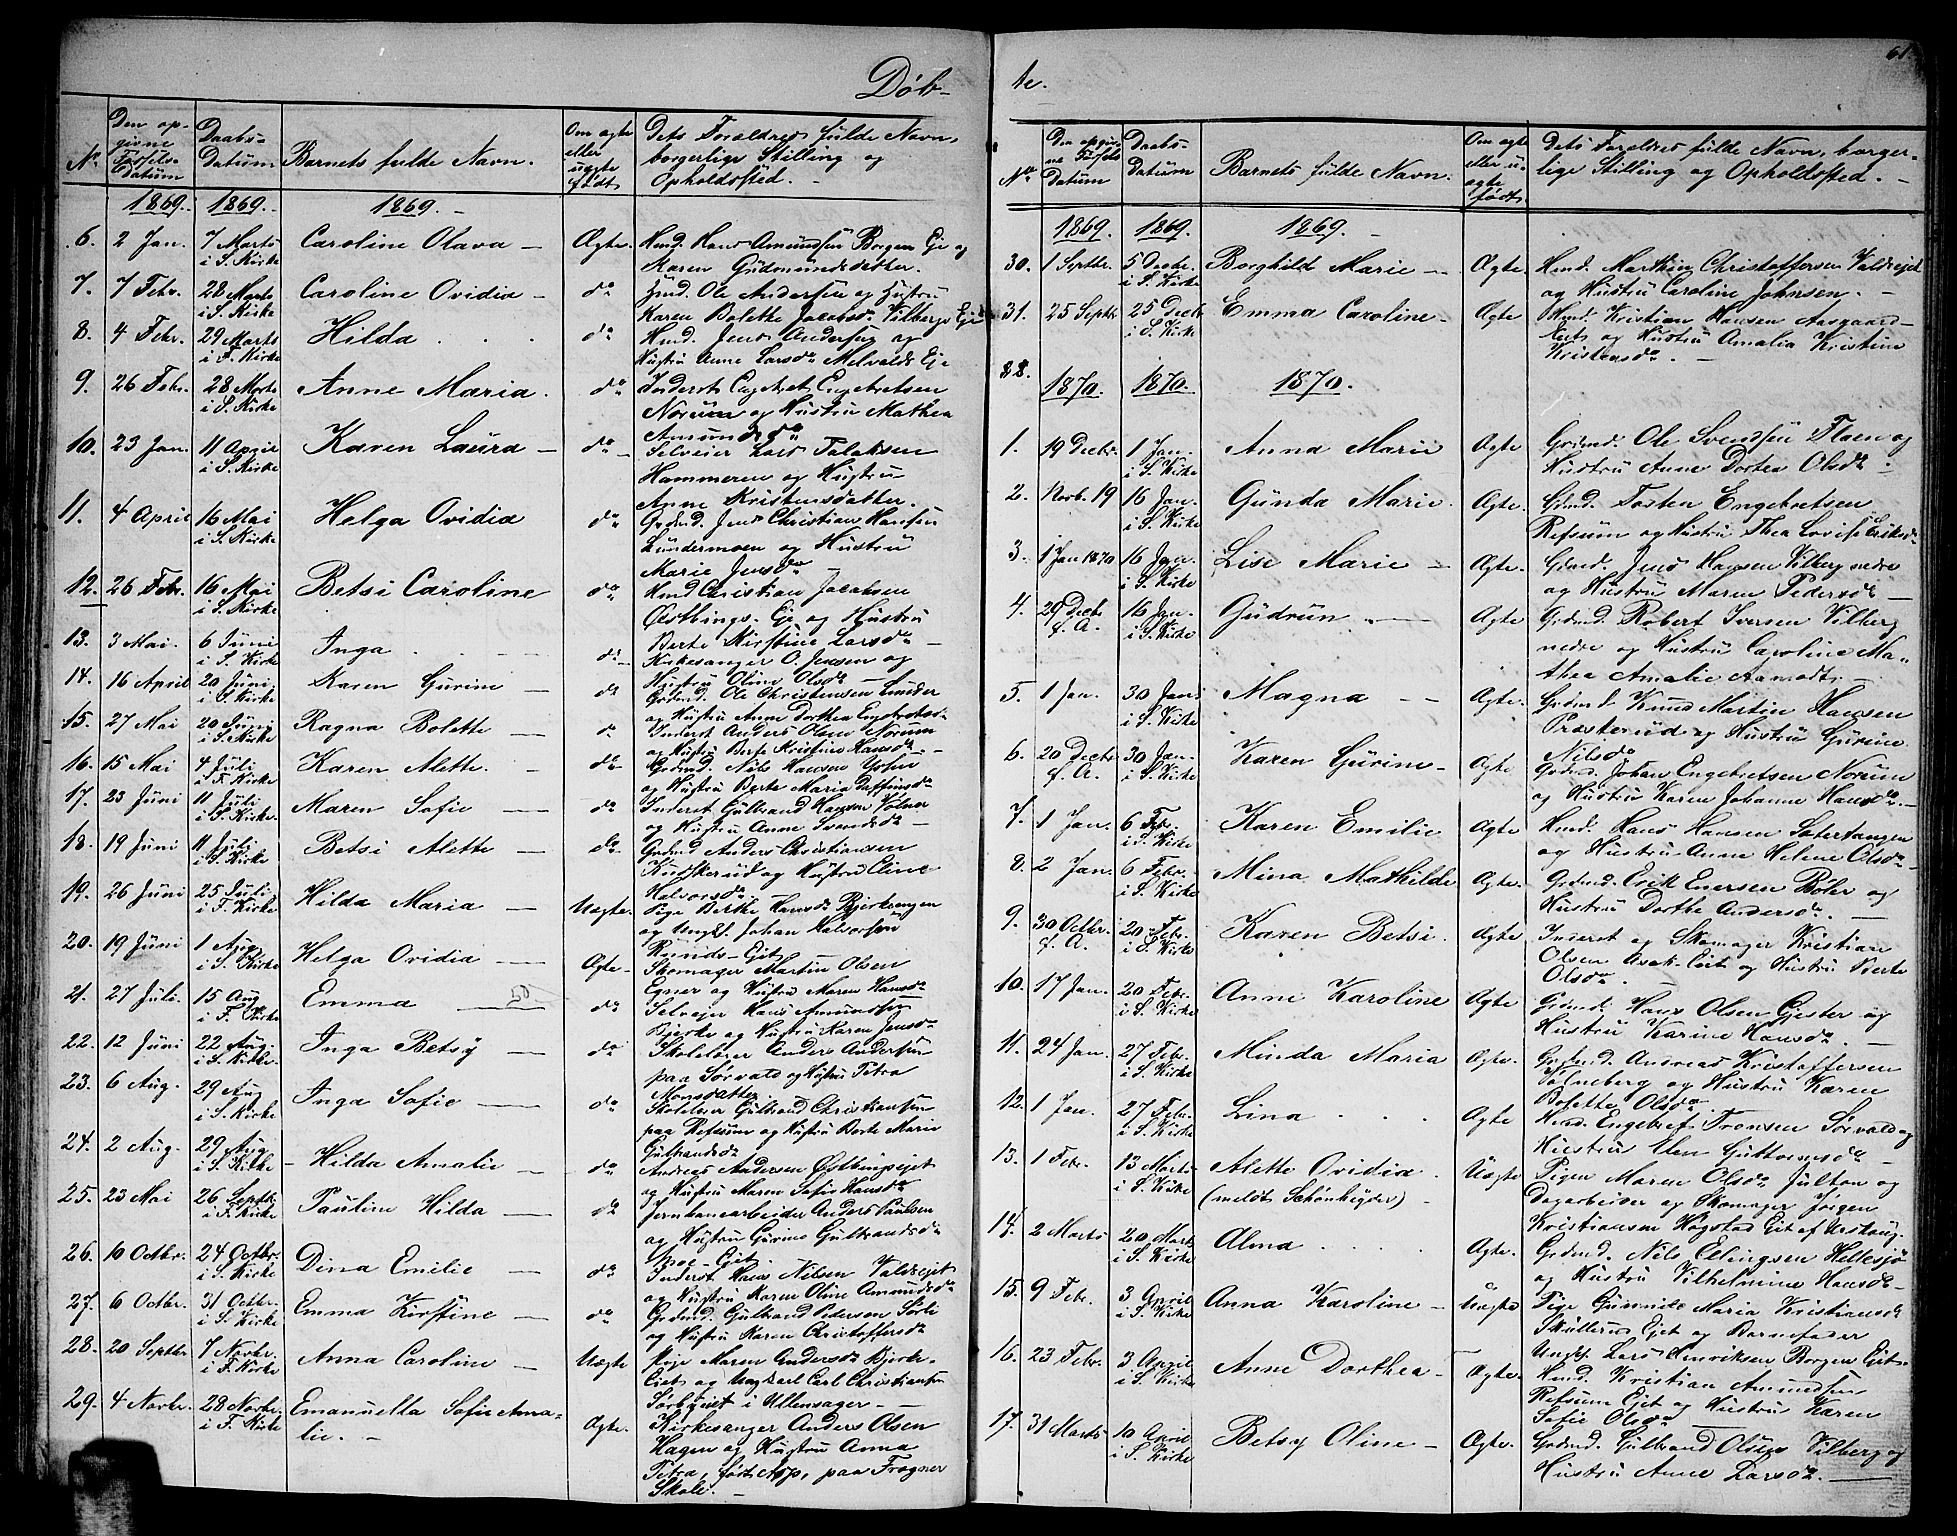 61.
Døb-
te.
No.
Den op-
givne
Fødsels-
datum
Daabs-
Datum
Barnets fulde Navn.
Om ægte
eller
uægte
født
Dets Forældres fulde Navn,
borgerlige Stilling og
Opholdssted.
1869. 1869. 1869.
6. 2 Jan. 7 Marts i S. Kirke Caroline Olava Ægte. Hmd. Hans Amundsen Borgen Eje og
Maren Gudmundsdatter.
7. 7 Febr. 28 Marts i S. Kirke Caroline Ovidia do Hmd. Ole Andersen og Hustru
Karen Bolette Jacobsdr Vilbergs Eje
8. 4 Febr. 29 Marts i F. Kirke Hilda do Hmd. Jens Andersen og
Hustru Anne Larsdr Melvalds Eje
9. 26 Febr. 28 Marts i S. Kirke Anne Maria. do Inderst Engebret Engebretsen
Norum og Hustru Mathea
Amundsdr
10. 23 Jan. 11 April i S. Kirke Karen Laura do Selveier Lars Falaksen
Hammeren og Hustru
Anne Kristensdatter.
11. 4 April 16 Mai i S. Kirke Helga Ovidia do Grdmd. Jens Christian Hansen
Lundermoen og Hustru
Marie Jensdr
12. 26 Febr. 16 Mai i S. Kirke Betsi Caroline do Hmd Christian Jacobsen
Østbings. Eje og Hustru
Berte Kirstine Larsdr
13. 3 Mai. 6 Juni i S. Kirke Inga do Kirkesanger O. Jensen og
Hustru Oline Olsdr
14. 16 April 20 Juni i S. Kirke Karen Gurine do Grdmd. Ole Christensen Linder
og Hustru Anne Dorthea Engebretsdr
15. 27 Mai 20 Juni i S. Kirke Ragna Bolette do Inderst Anders Olsen Norum
og Hustru Berte Kristine Hansdr
16. 15 Mai 4 Juli i F. Kirke Karen Alette. do Grdmd. Nils Hansen
og Hustru Berte Maria
17. 23 Juni 11 Juli i S. Kirke. Maren Sofie do Inderst Gulbrand Hansen Volner
og Hustru Anne Svendsdr
18. 19 Juni 11 Juli i S. Kirke Betsi Alette do Grdmd Anders Christiansen
og Hustru Eline
Halvorsdr
19. 26 Juni 25 Juli i F. Kirke Hilda Maria Uægte. Pige Berthe Hansdr Bjerkeengen
og Ungk. Johan Halvorsen
Runds-Ejet
20. 19 Juni 1 Aug i S. Kirke Helga Ovidia Ægte. Skomager Martin Olsen
Egner og Hustru Maren Hansdr
21. 27 Juli. 15 Aug i F. Kirke Emma do Selvejer Hans Amundsen
Bjerke og Hustru Karen Jensdr
22. 12 Juni 22 Aug. i S. Kirke Inga Betsy do Skolelærer Anders Andersen
paa Sørvald og Hustru Petra
Monsdatter
23. 6 Aug. 29 Aug i S. Kirke Inga Sofie do Skolelærer Gulbrand Christiansen
paa Refsum og Hustru Berte Marie
Gulbrandsdr
24. 2 Aug. 29 Aug i S. Kirke Hilda Amalie do Andreas Andersen Østbingsejet
og Hustru Maren Sofie Hansdr
25. 23 Mai 26 Septbr i F. Kirke Pauline Hilda do Jernbanearbeider Anders Paulsen
og Hustru Gurine Gulbrandsdr
Moe-Ejet.
26. 10 Octbr. 24 Octbr. i S. Kirke Dina Emilie do Inderst Hans Nilsen Valdsejet
og Hustru Karen Oline Amundsdr
27. 6 Octbr. 31 Octbr. i S. Kirke Emma Kirstine do Grdmd. Gulbrand Pedersen Sørli
og Hustru Karen Christoffersdr
28. 20 Septbr 7 Novbr. i F. Kirke Anna Caroline Uægte Pige Maren Andersdr Bjerke-
Eiet og Ungkarl Carl Christiansen
Sørbyeiet i Ullensager.
29. 4 Novbr. 28 Novbr. i F. Kirke Emanuella Sofie Ama-
lie. Ægte. Kirkesanger Anders Olsen
Hagen og Hustru Anna
Petra, født Asp, paa Frogner
Skole.
No
Den opgiv-
ne Fødsels
Datum
Daabs-
Datum
Barnets fulde Navn.
Om ægte
eller u-
ægte
født
Dets Forældres fulde Navn, borger-
lige Stilling og Opholdssted.
1869. 1869. 1869.
30. 1 Septbr. 5 Decbr. i S. Kirke Borghild Marie Ægte Hmd. Martin Christoffersen Valdsejet
og Hustru Caroline Johnsen.
31. 25 Septbr. 25 Decbr i S. Kirke Emma Caroline Ægte Hmd. Kristian Hansen Aasgaard-
Eiet og Hustru Amalia Kristine
Kristensdr.
32.
1870. 1870. 1870.
1. 19 Decbr. 1 Jan. i S. Kirke Anna Marie Ægte Grdmd. Ole Svendsen Flaen og
Hustru Anne Dortea Olsdr
2. Novb. 19 16 Jan. i S. Kirke Gunda Marie. Ægte. Grdmd. Tosten Engebretsen
Refsum og Hustru Thea Lovise
3. 1 Jan 1870 16 Jan. i S. Kirke Lise Marie Ægte. Grdmd. Jens Hansen Vilberg nedre
og Hustru Maren Pedersdr
4. 29 Decbr f. A. 16 Jan. i S. Kirke Gudrun Ægte Grdmd. Robert Iversen Vilberg
nedre og Hustru Caroline Ma-
thea Amalie Aamodt.
5. 1 Jan. 30 Jan. i S. Kirke Magna Ægte. Grdmd Knud Martin Hansen
Præsterud og Hustru Gurine
Nilsdr
6. 20 Decbr f. A. 30 Jan. i S. Kirke Karen Gurine Ægte Grdmd. Johan Engebretsen Norum
og Hustru Karen Johanne Hansdr.
7. 1 Jan. 6 Febr. i S. Kirke Karen Emilie Ægte Hmd. Hans Hansen Sætertangen
og Hustru Anne Helene Olsdr
8. 2 Jan. 6 Febr. i S. Kirke Mina Mathilde Ægte. Grdmd. Erik Enersen Boler og
Hustru Dorthe Andersdr.
9. 30 Octbr. f. A. 20 Febr. i S. Kirke Karen Betsi. Ægte Inderst og Skomager Kristian
Olsen Asak-Eiet og Hustru Berte
Olsdr.
10. 17 Jan. 20 Febr. i S. Kirke Anne Karoline Ægte Grdmd. Hans Olsen Gjester og
Hustru Karine Hansdr.
11. 24 Jan. 27 Febr. i S. Kirke Minda Maria Ægte. Grdmd. Andreas Kristoffersen
Valneberg og Hustru Karen
Bolette Olsdr.
12. 1 Jan. 27 Febr. i S. Kirke Lina Ægte Hmd. Engebret Tronsen Sørvald og
Hustru Elen Guttormsdr
13. 1 Febr. 13 Marts i S. Kirke Alette Ovidia
(meldt Schønheyder) Uægte Pigen Maren Olsdr Julton og
Dagarbeider og Skomager Jørgen
Kristiansen Hogstad Ejet af Urskoug.
14. 2 Marts 20 Marts i S. Kirke Alma Ægte Grdmd. Nils Ellingsen Hellesjø
og Hustru Vilhelmine Hansdr
15. 9 Febr. 3 April i S. Kirke Anna Karoline Uægte Pige Gunnile Maria Kristiansdr
Skullerud Ejet og Barnefader
Ungk. Lars Henriksen Borgen Eiet
16. 23 Febr. 3 April i S. Kirke Anne Dorthea Ægte. Hmd. Kristian Amundsen
Refsum Ejet og Hustru Karen
Sofie Olsdr
17. 31 Marts 10 April i S. Kirke Betsy Oline Ægte. Grdmd. Gulbrand Olsen Vilberg og
Hustru Anne Larsdr.